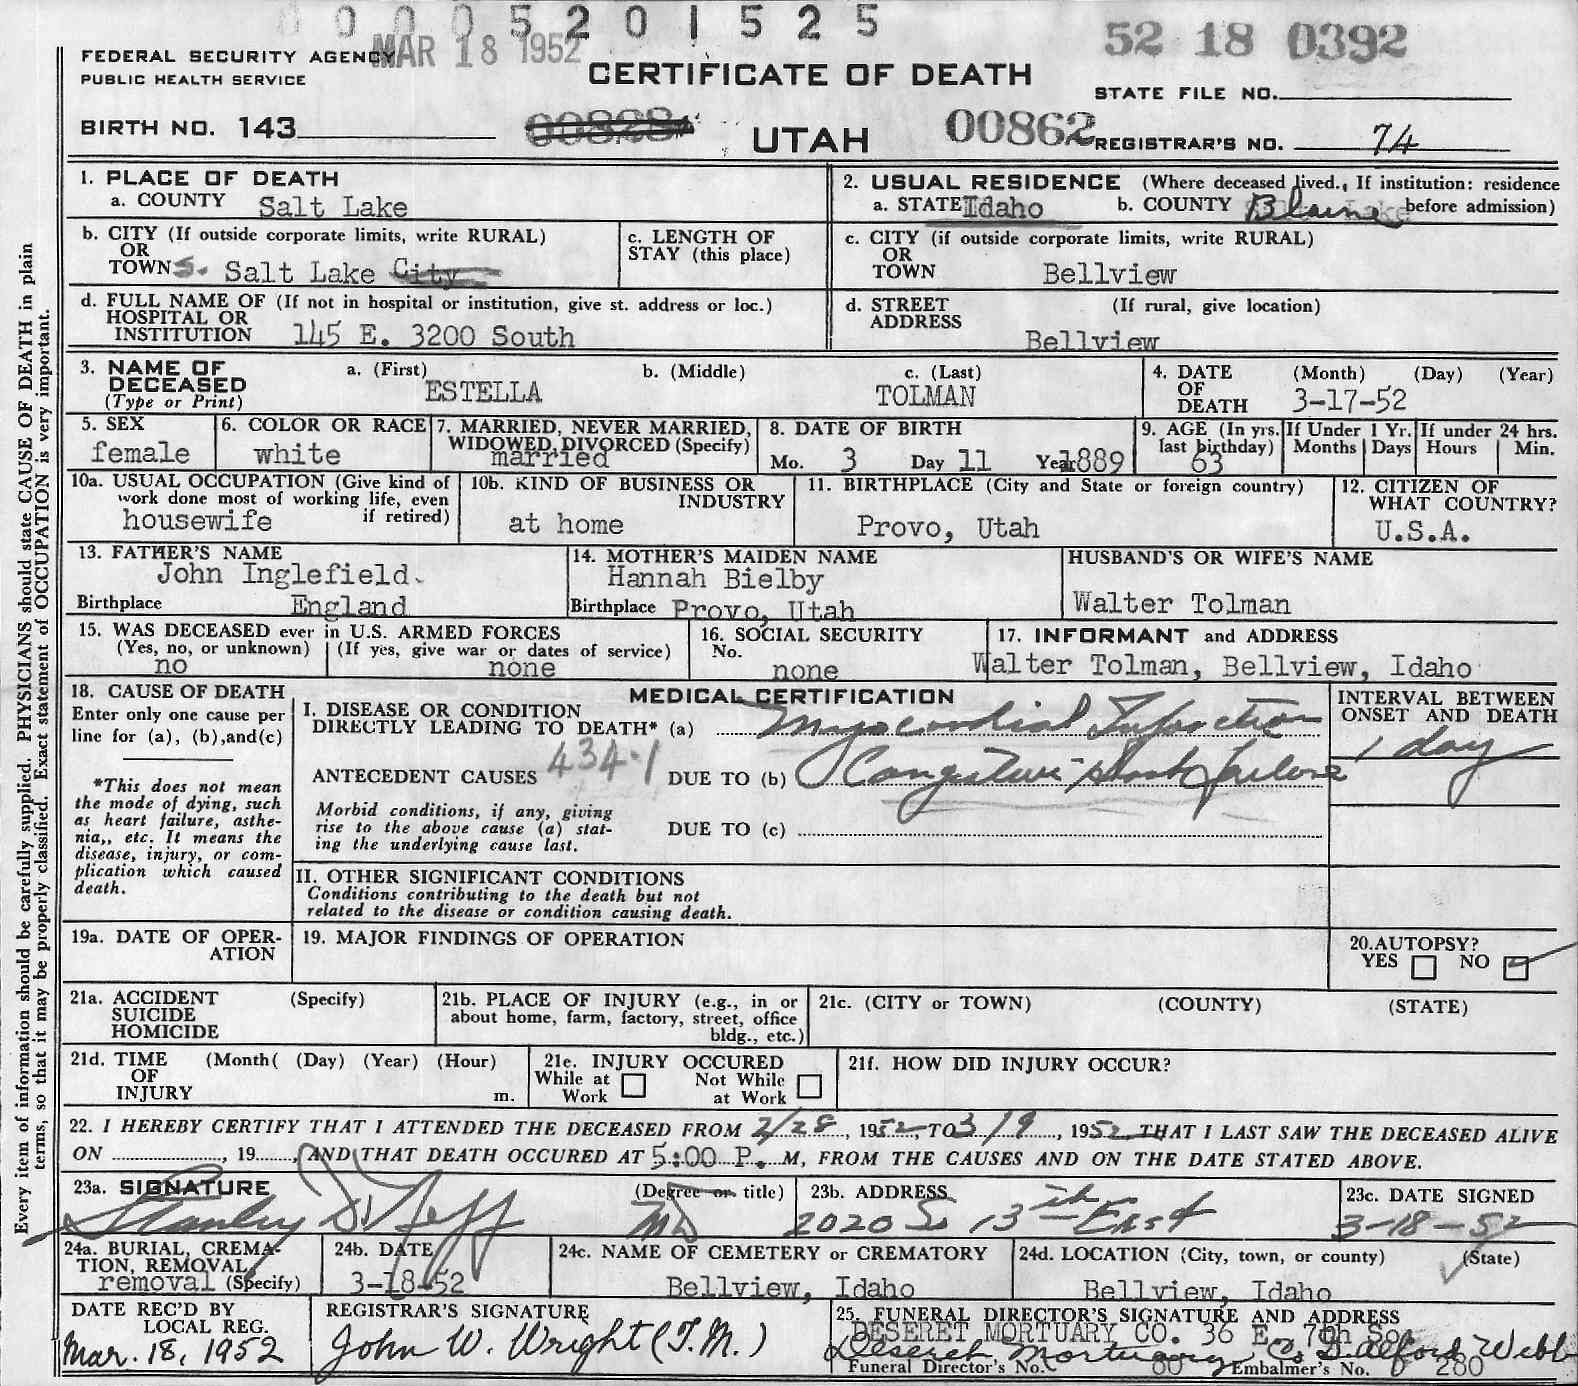 0 0 0 5 2 0 1 5 2 5
MAR 18 1952
52 18 0392
FEDERAL SECURITY AGENCY
PUBLIC HEALTH SERVICE
CERTIFICATE OF DEATH
STATE FILE NO.
BIRTH NO. 143
UTAH
00862
REGISTRAR'S NO. 74
1. PLACE OF DEATH
a. COUNTY Salt Lake
2. USUAL RESIDENCE (Where deceased lived., If institution: residence before admission)
a. STATE Idaho b. COUNTY Blaine
b. CITY (If outside corporate limits, write RURAL)
OR
TOWN S. Salt Lake City
c. LENGTH OF
STAY (this place)
c. CITY (if outside corporate limits, write RURAL)
OR
TOWN Bellview
d. FULL NAME OF (If not in hospital or institution, give st. address or loc.)
HOSPITAL OR
INSTITUTION 145 E. 3200 South
d. STREET (If rural, give location)
ADDRESS
Bellview
3. NAME OF DECEASED
(Type or Print)
a. (First) ESTELLA
b. (Middle)
c. (Last) TOLMAN
4. DATE OF DEATH
(Month) (Day) (Year)
3-17-52
5. SEX
female
6. COLOR OR RACE
white
7. MARRIED, NEVER MARRIED,
WIDOWED, DIVORCED (Specify)
married
8. DATE OF BIRTH
Mo. 3 Day 11 Year 1889
9. AGE (In yrs. last birthday)
63
If Under 1 Yr.
Months Days
If under 24 hrs.
Hours Min.
10a. USUAL OCCUPATION (Give kind of
work done most of working life, even
if retired)
housewife
10b. KIND OF BUSINESS OR
INDUSTRY
at home
11. BIRTHPLACE (City and State or foreign country)
Provo, Utah
12. CITIZEN OF
WHAT COUNTRY?
U.S.A.
13. FATHER'S NAME
John Inglefield
Birthplace England
14. MOTHER'S MAIDEN NAME
Hannah Bielby
Birthplace Provo, Utah
HUSBAND'S OR WIFE'S NAME
Walter Tolman
15. WAS DECEASED ever in U.S. ARMED FORCES
(Yes, no, or unknown) (If yes, give war or dates of service)
no none
16. SOCIAL SECURITY
No.
none
17. INFORMANT and ADDRESS
Walter Tolman, Bellview, Idaho
18. CAUSE OF DEATH
Enter only one cause per
line for (a), (b),and(c)
*This does not mean
the mode of dying, such
as heart failure, asthe-
nia,, etc. It means the
disease, injury, or com-
plication which caused
death.
MEDICAL CERTIFICATION
I. DISEASE OR CONDITION
DIRECTLY LEADING TO DEATH* (a) Myocardial Infarction
ANTECEDENT CAUSES 434.1 DUE TO (b) Congestive Heart failure
Morbid conditions, if any, giving
rise to the above cause (a) stat-
ing the underlying cause last.
DUE TO (c)
INTERVAL BETWEEN
ONSET AND DEATH
1 day
II. OTHER SIGNIFICANT CONDITIONS
Conditions contributing to the death but not
related to the disease or condition causing death.
19a. DATE OF OPER-
ATION
19. MAJOR FINDINGS OF OPERATION
20. AUTOPSY?
YES NO
21a. ACCIDENT (Specify)
SUICIDE
HOMICIDE
21b. PLACE OF INJURY (e.g., in or
about home, farm, factory, street, office
bldg., etc.)
21c. (CITY or TOWN) (COUNTY) (STATE)
21d. TIME (Month( (Day) (Year) (Hour)
OF
INJURY m.
21e. INJURY OCCURED
While at Work
Not While at Work
21f. HOW DID INJURY OCCUR?
22. I HEREBY CERTIFY THAT I ATTENDED THE DECEASED FROM 2/28, 1952, TO 3/9, 1952 THAT I LAST SAW THE DECEASED ALIVE
ON, 19, AND THAT DEATH OCCURED AT 5:00 P. M, FROM THE CAUSES AND ON THE DATE STATED ABOVE.
23a. SIGNATURE (Degree or title)
Stanley D. Neff MD
23b. ADDRESS
2020 So 13th East
23c. DATE SIGNED
3-18-52
24a. BURIAL, CREMA-
TION, REMOVAL
removal (Specify)
24b. DATE
3-18-52
24c. NAME OF CEMETERY or CREMATORY
Bellview, Idaho
24d. LOCATION (City, town, or county) (State)
Bellview, Idaho
DATE REC'D BY
LOCAL REG.
Mar. 18, 1952
REGISTRAR'S SIGNATURE
John W. Wright (T.M.)
25. FUNERAL DIRECTOR'S SIGNATURE AND ADDRESS
DESERET MORTUARY CO. 36 E. 7th So.
Deseret Mortuary Co D. Alford Webb
Funeral Director's No. 80 Embalmer's No. 280
Every item of information should be carefully supplied. PHYSICIANS should state CAUSE OF DEATH in plain
terms, so that it may be properly classified. Exact statement of OCCUPATION is very important.